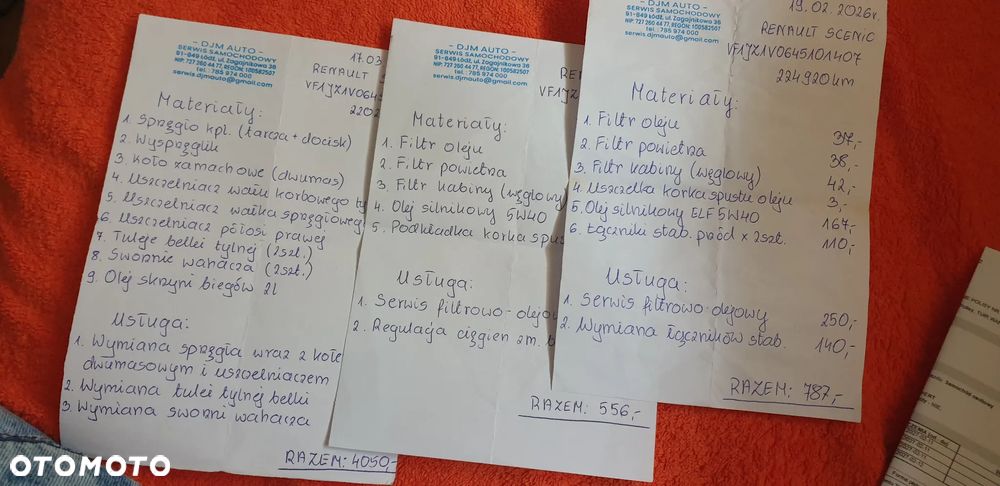 - DJM AUTO -
SERWIS SAMOCHODOWY
91-849 Łódź, ul. Zagajnikowa 36
NIP: 727 260 44 77, REGON: 100582507
tel.: 785 974 000
serwis.djmauto@gmail.com
17.03
RENAULT S
VF1JZ1V0645
2202
Materiały:
1. Sprzęgło kpl. (tarcza + docisk)
2. Wysprzęglik
3. Koło zamachowe (dwumas)
4. Uszczelniacz wału korbowego ty
5. Uszczelniacz wałka sprzęgłoweg
6. Uszczelniacz półosi prawej
7. Tuleje belki tylnej (2szt.)
8. Sworznie wahacza (2szt.)
9. Olej skrzyni biegów 2l
Usługa:
1. Wymiana sprzęgła wraz z kołe
dwumasowym i uszczelniaczem
2. Wymiana tulei tylnej belki
3. Wymiana sworzni wahacza
RAZEM: 4050,-
- DJM AUTO -
SERWIS SAMOCHODOWY
91-849 Łódź, ul. Zagajnikowa 36
NIP: 727 260 44 77, REGON: 100582507
tel.: 785 974 000
serwis.djmauto@gmail.com
REN
VF1JZ
Materiały:
1. Filtr oleju
2. Filtr powietrza
3. Filtr kabiny (węglowy)
4. Olej silnikowy 5W40
5. Podkładka korka spus
Usługa:
1. Serwis filtrowo-olejow
2. Regulacja cięgien zm. b
RAZEM: 556,-
- DJM AUTO -
SERWIS SAMOCHODOWY
91-849 Łódź, ul. Zagajnikowa 36
NIP: 727 260 44 77, REGON: 100582507
tel.: 785 974 000
serwis.djmauto@gmail.com
19.02.2026r.
RENAULT SCENIC
VF1JZ1V0645101407
224920km
Materiały:
1. Filtr oleju 37,-
2. Filtr powietrza 38,-
3. Filtr kabiny (węglowy) 42,-
4. Uszczelka korka spustu oleju 3,-
5. Olej silnikowy ELF 5W40 167,-
6. Łączniki stab. przód x 2szt. 110,-
Usługa:
1. Serwis filtrowo-olejowy 250,-
2. Wymiana łączników stab. 140,-
RAZEM: 787,-
OTOMOTO